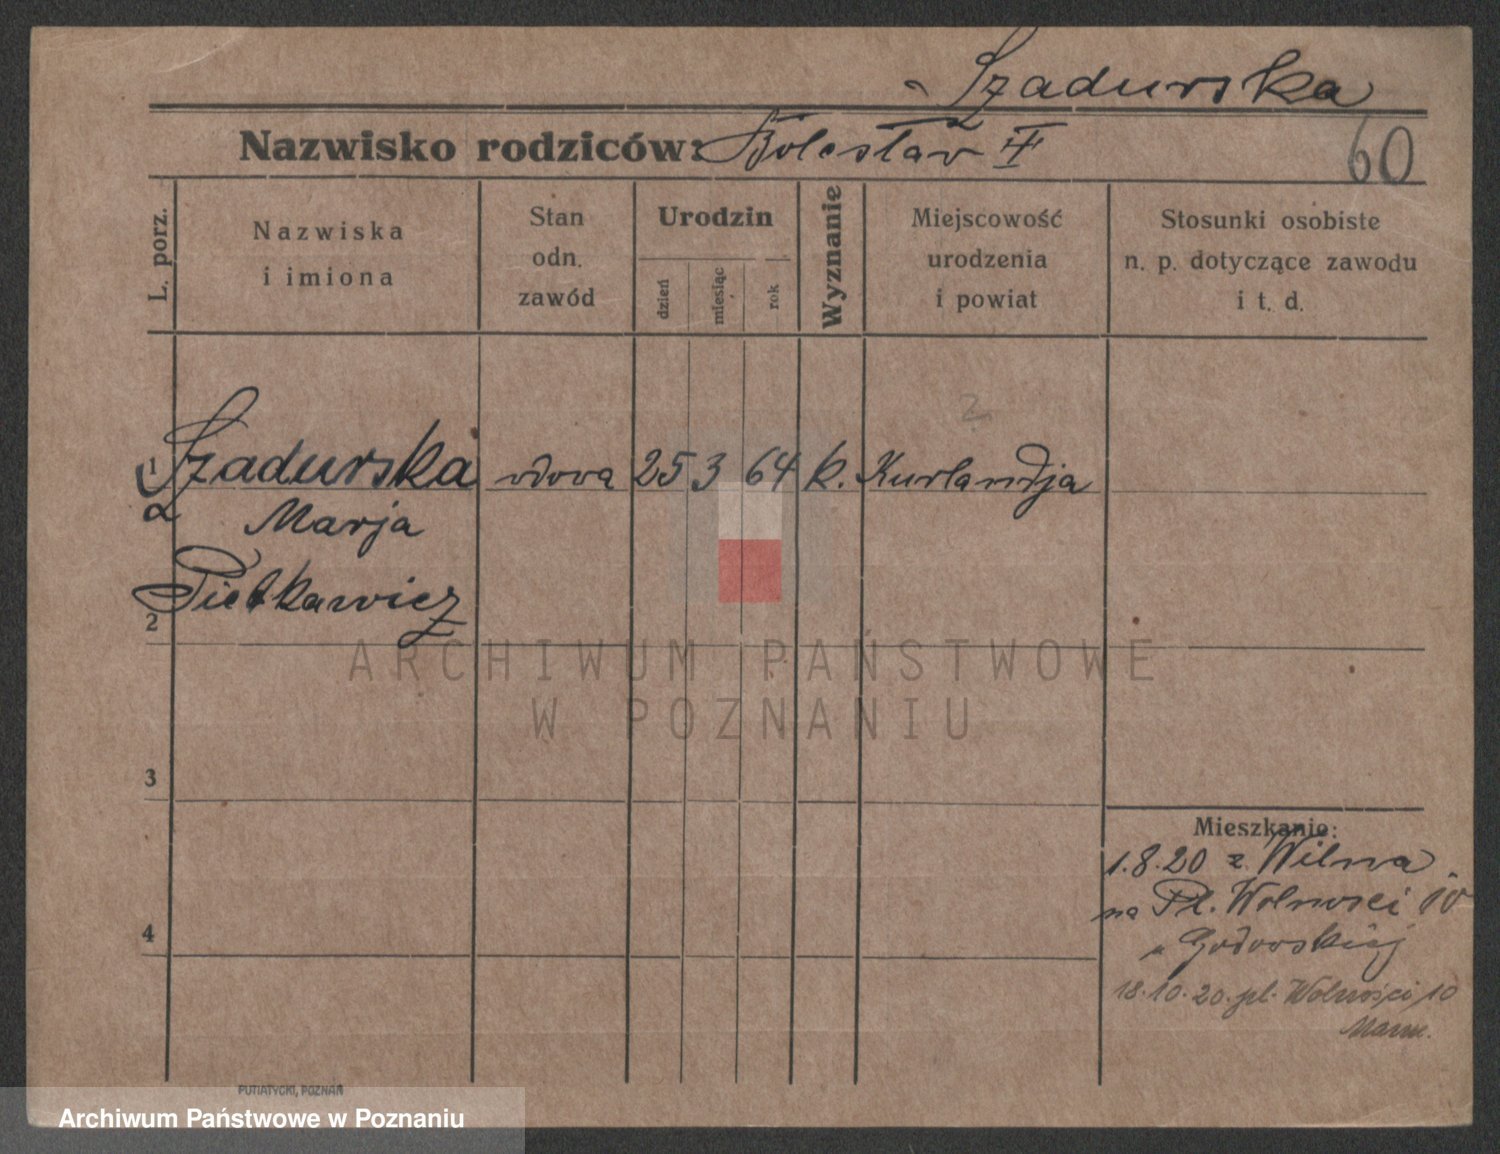 Szadurska
Nazwisko rodziców: Bolesław
60
L. porz.
Nazwiska
i imiona
Stan
odn.
zawód
Urodzin
dzień
miesiąc
rok
Wyznanie
Miejscowość
urodzenia
i powiat
Stosunki osobiste
n. p. dotyczące zawodu
i t. d.
2
1 Szadurska wdowa 25 3 64 k. Kurlandja
Marja
Pietkawicz
2
3
4
Mieszkanie:
1.8.20 z. Wilna
na Pl. Wolnosci 10
18.10.20. pl. Wolności 10
ARCHIWUM PAŃSTWOWE
W POZNANIU
PUTIATYCKI, POZNAŃ
Archiwum Państwowe w Poznaniu